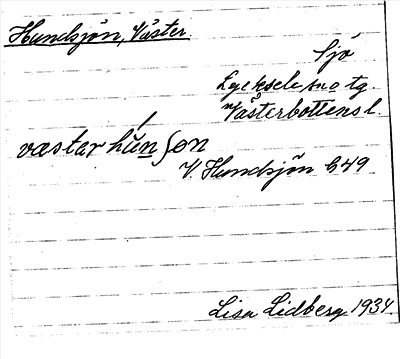 Hundsjön, Väster
Sjö
Lycksele sn o tg.
Västerbottens l.
västar hùn ʃøn
V. Hundsjön G49
Lisa Lidberg 1934